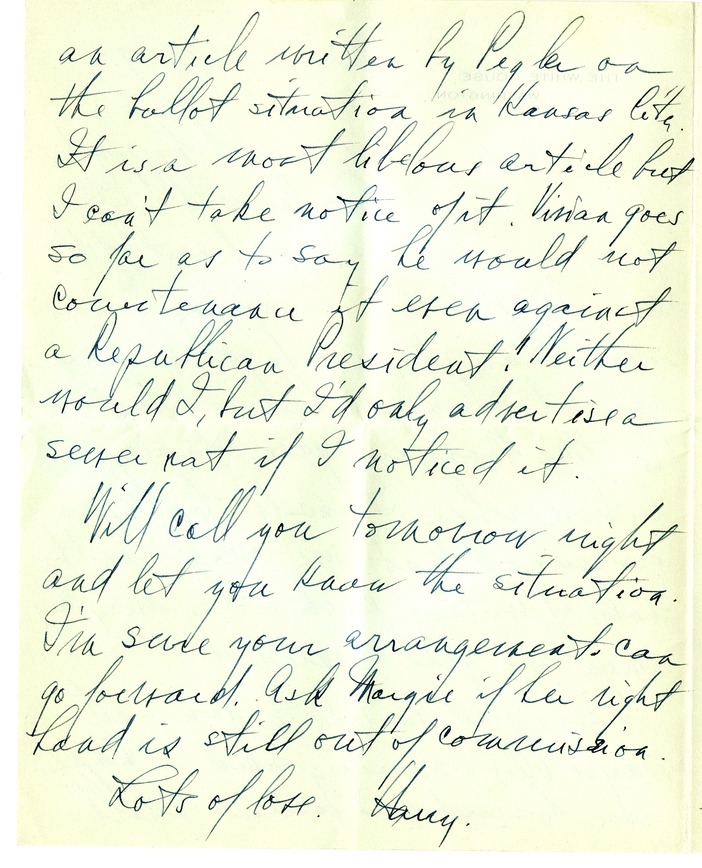 an article written by Pegler on
the ballot situation in Kansas City.
It is a most libelous article but
I can't take notice of it. Vivian goes
so far as to say he would not
countenance it even against
a Republican President! Neither
would I, but I'd only advertise a
sewer rat if I noticed it.
Will call you tomorrow night
and let you know the situation.
I'm sure your arrangements can
go forward. Ask Margie if her right
hand is still out of commission.
Lots of love. Harry.
THE WHITE HOUSE
WASHINGTON